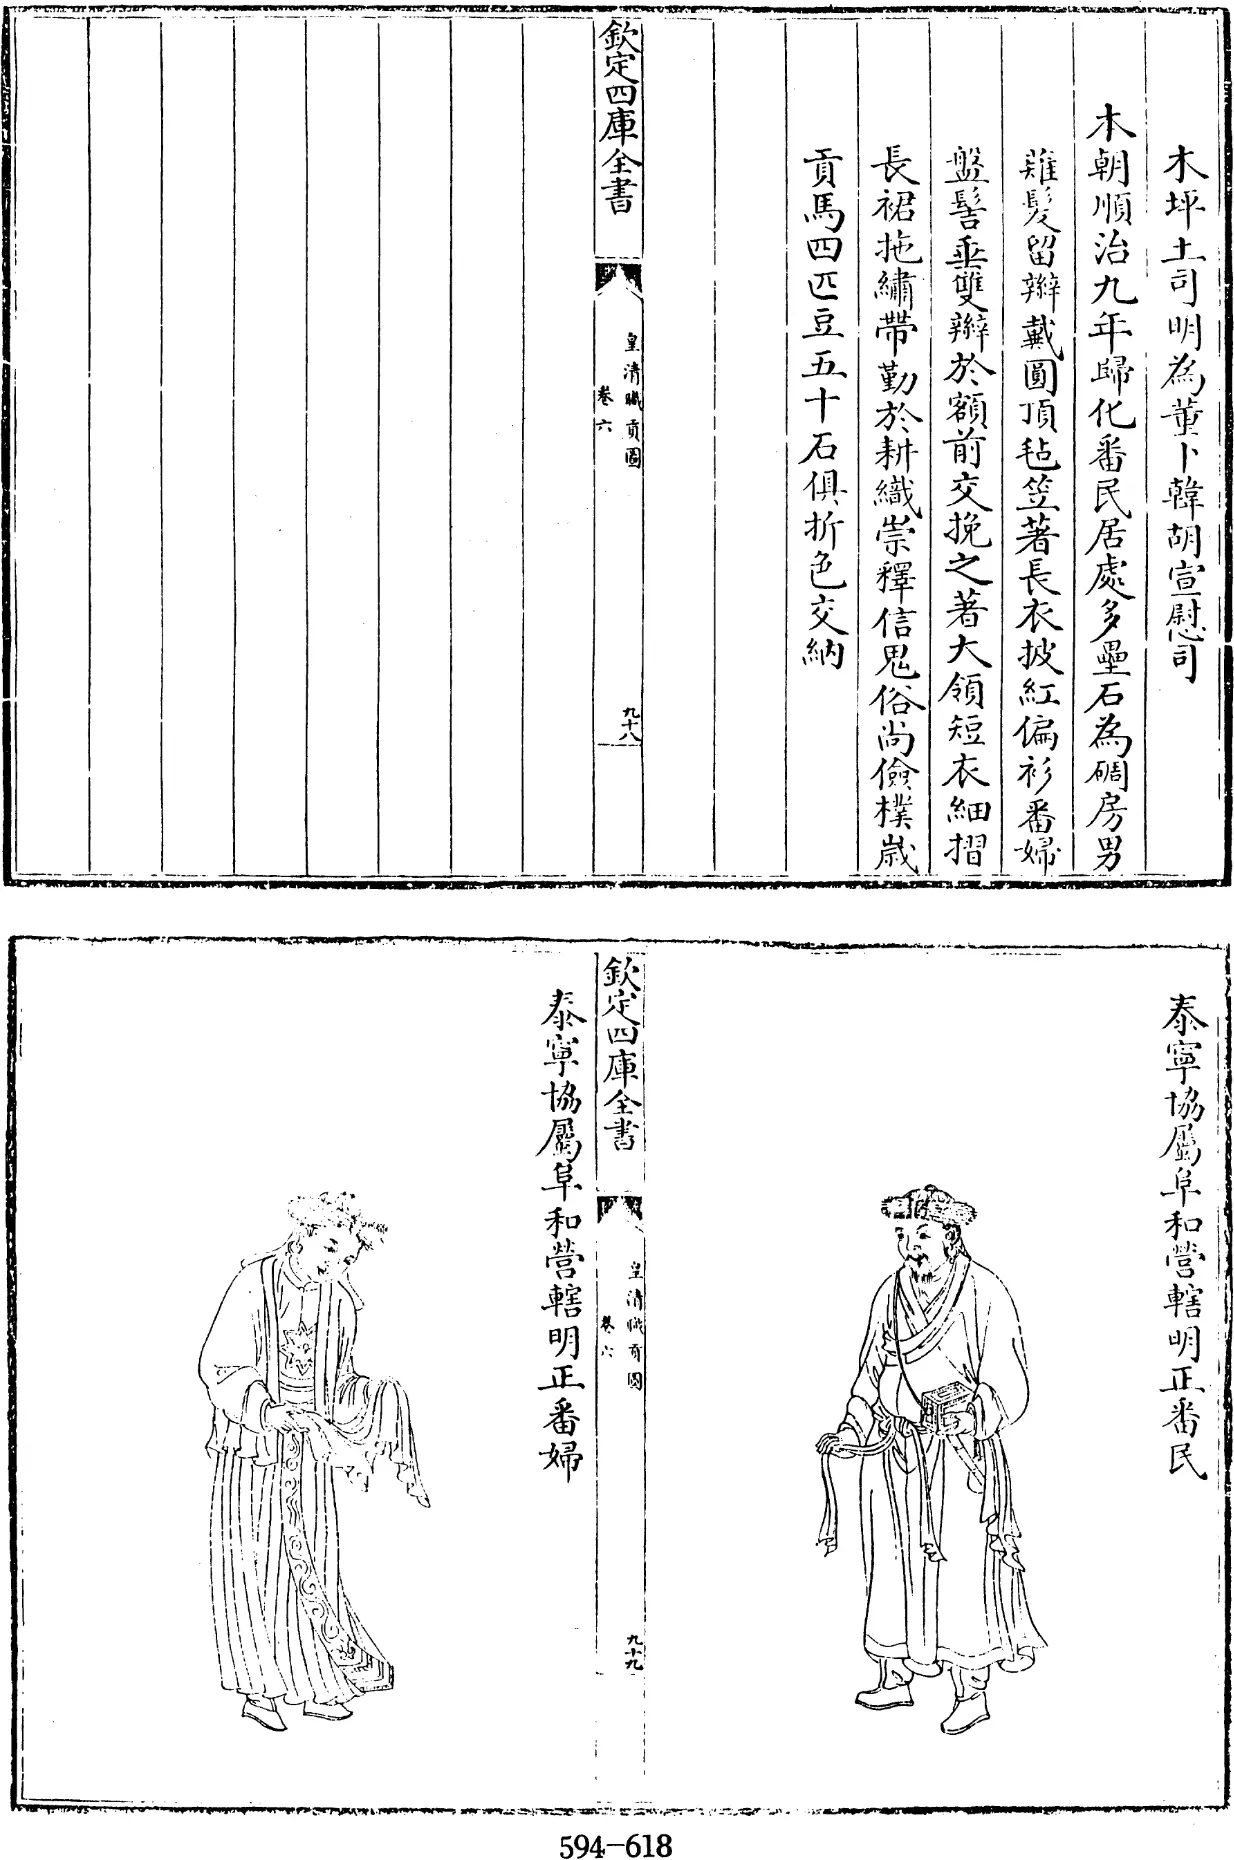 木坪土司明為董卜韓胡宣慰司
本朝順治九年歸化番民居處多壘石為碉房男
薙髮留辮戴圓頂毡笠著長衣披紅偏衫番婦
盤髻垂雙辮於額前交挽之著大領短衣細摺
長裙拖繡帶勤於耕織崇釋信鬼俗尚儉樸歲
貢馬四匹豆五十石俱折色交納
欽定四庫全書
皇清職貢圖
卷六
九十八
泰寧協屬阜和營轄明正番民
欽定四庫全書
皇清職貢圖
卷六
九十九
泰寧協屬阜和營轄明正番婦
594-618